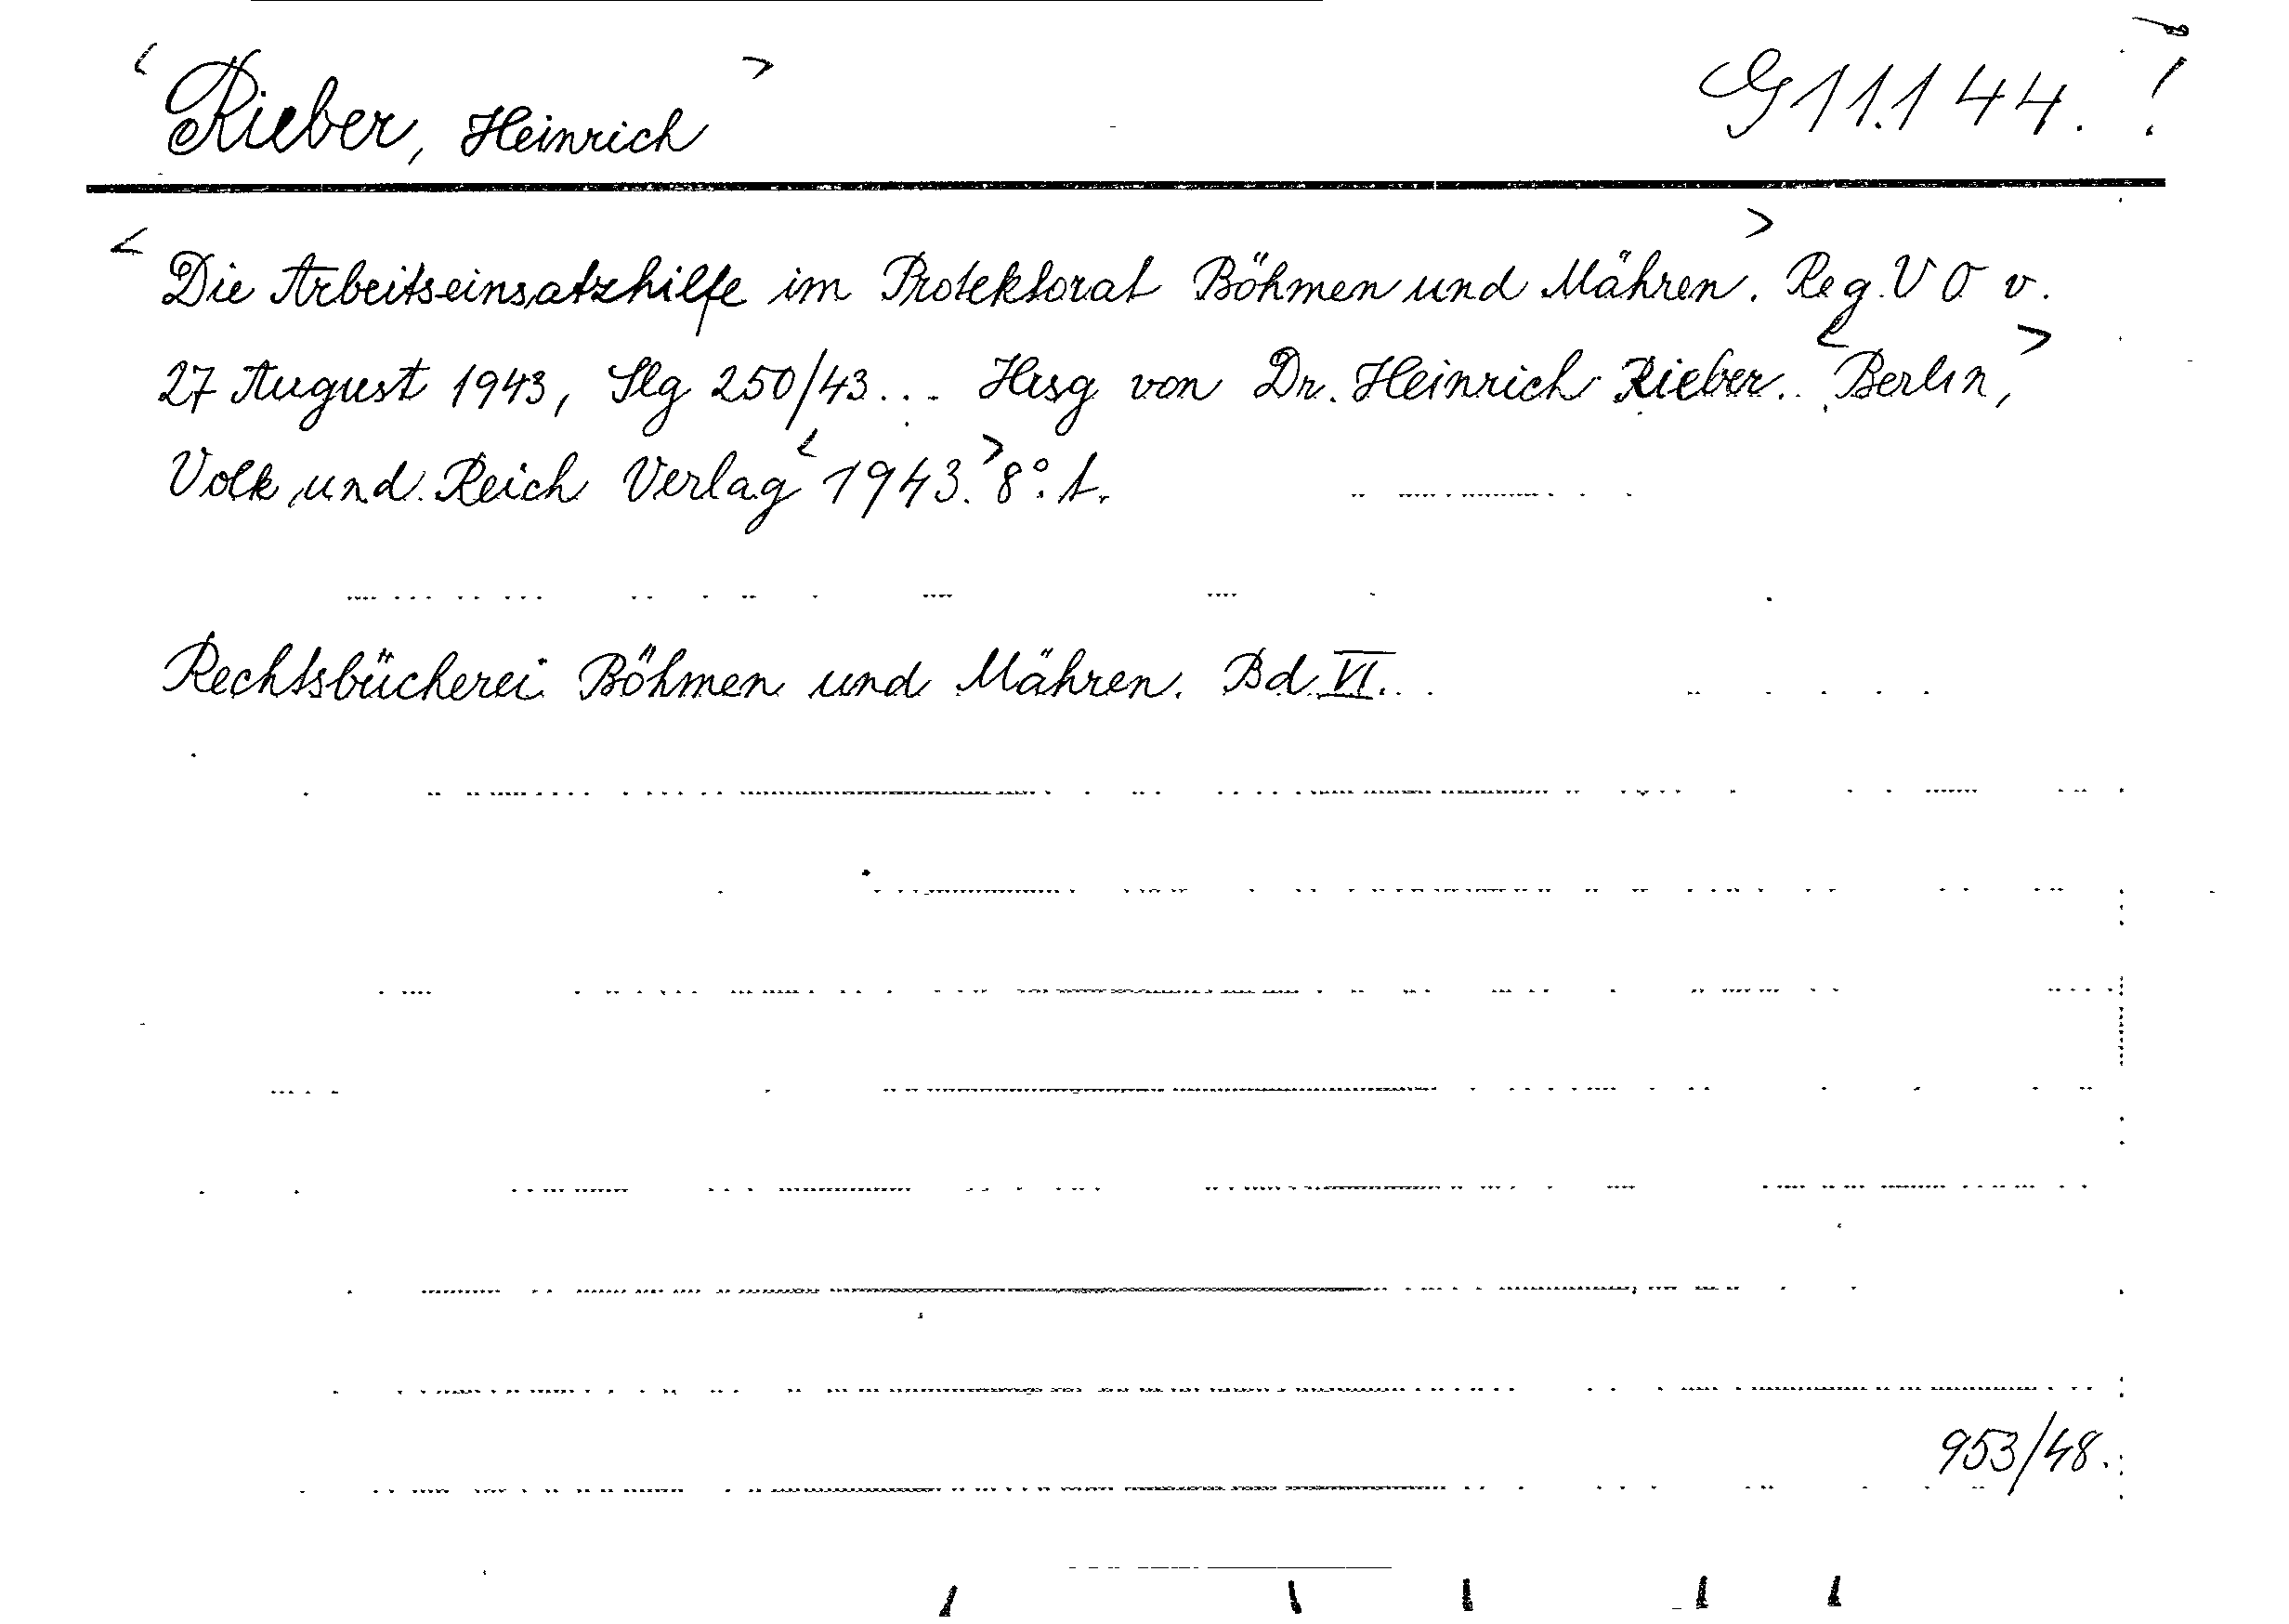 <Rieber, Heinrich> G 11.144. !
<Die Arbeitseinsatzhilfe im Protektorat Böhmen und Mähren>. Reg. V O v.
27 August 1943, Slg 250/43... Hrsg von Dr. Heinrich Rieber. <Berlin,>
Volk und Reich Verlag <1943.> 8°. t.
Rechtsbücherei Böhmen und Mähren. Bd. VI.
953/48.